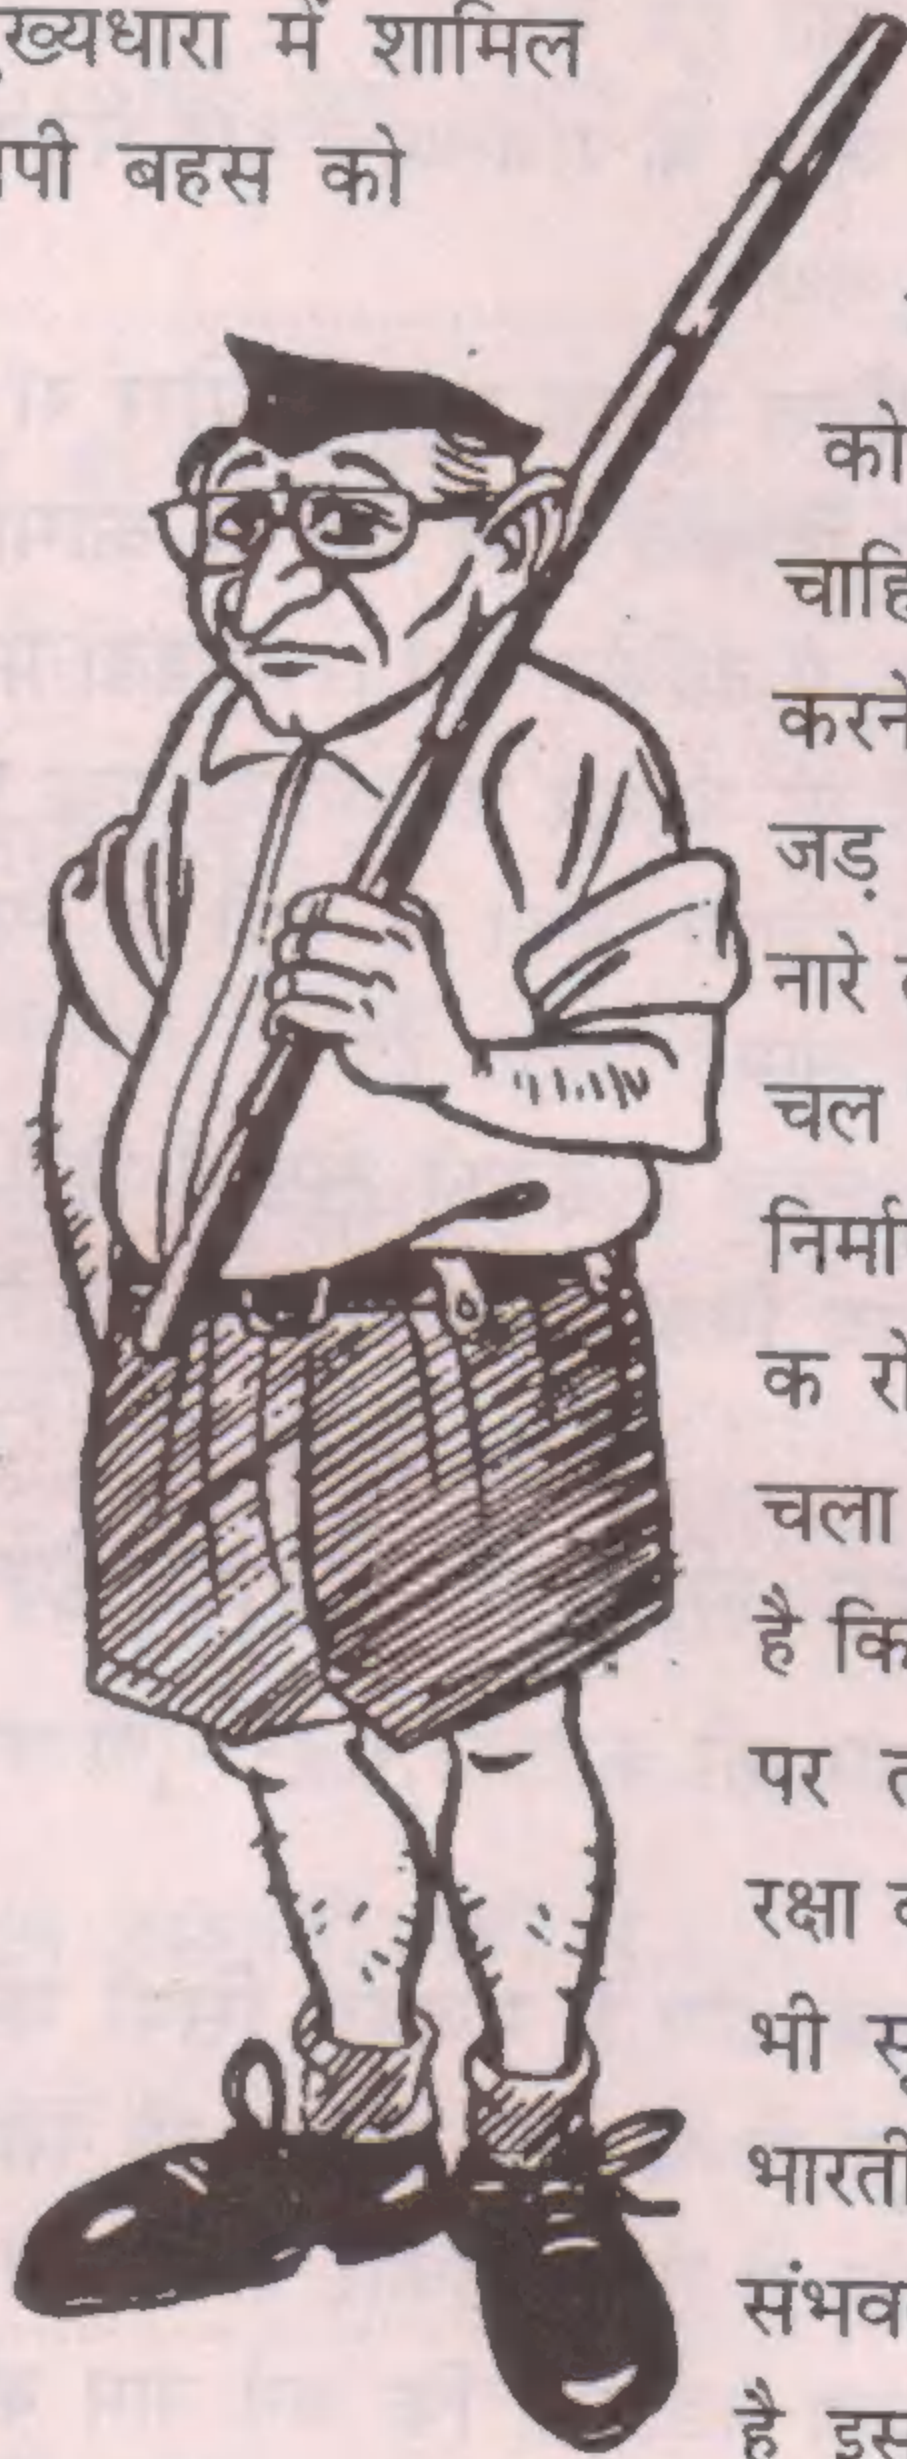 ख्यधारा में शामिल
पी बहस को
को
चाहि
करने
जड़
नारे
चल
निर्मा
क रो
चला
है कि
पर
रक्षा
भी सू
भारती
संभव
है इस